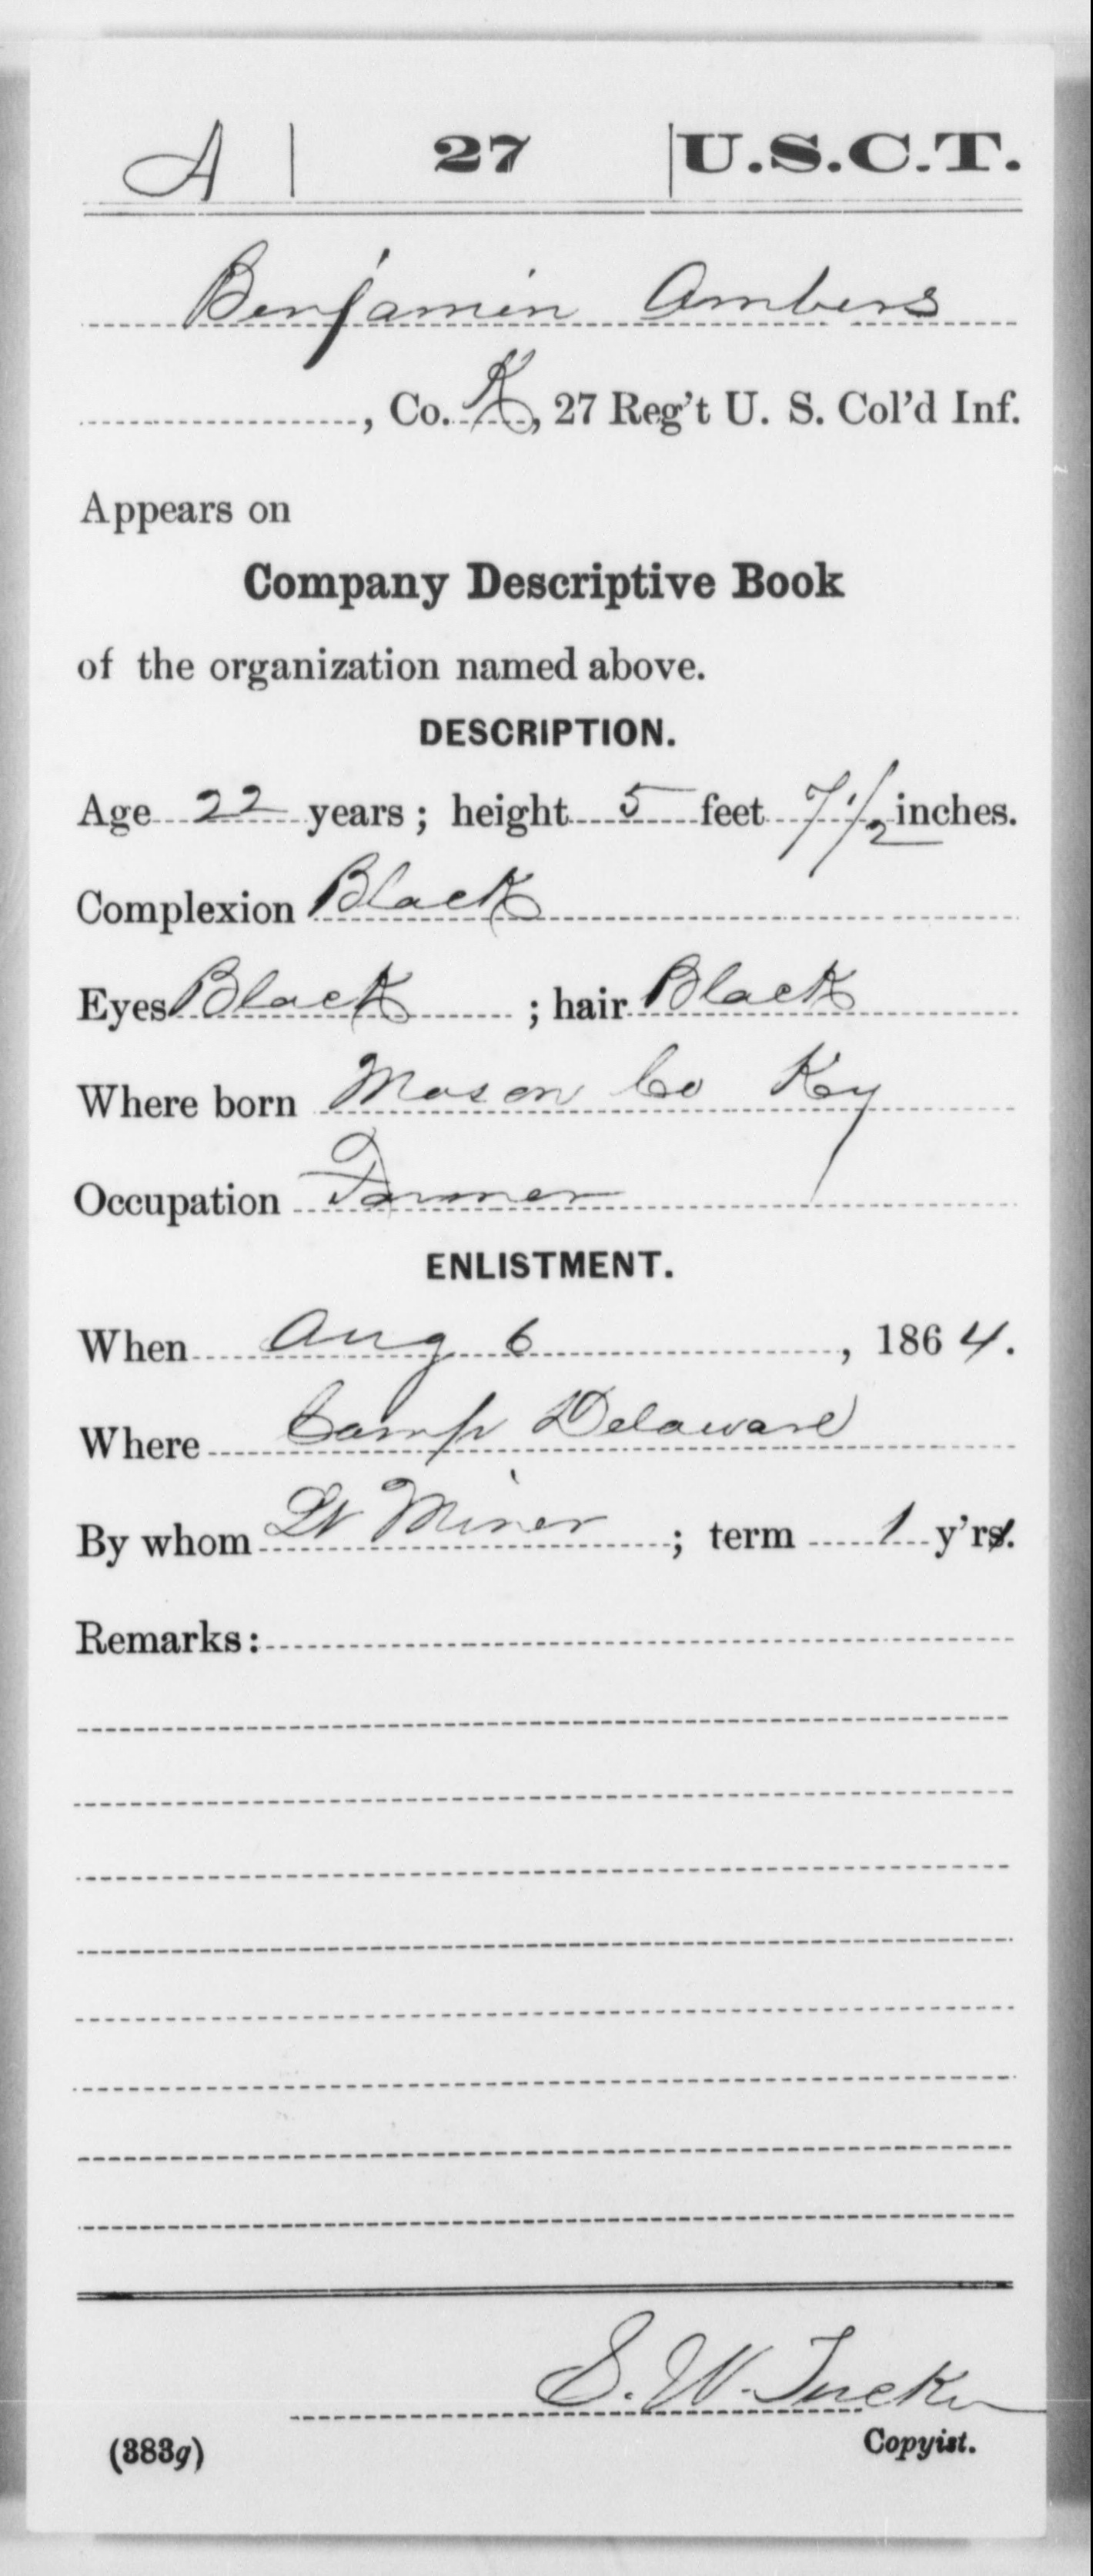 A | 27 | U.S.C.T.
Benjamin Ambers
, Co. K, 27 Reg't U. S. Col'd Inf.
Appears on
Company Descriptive Book
of the organization named above.
DESCRIPTION.
Age 22 years; height 5 feet 7 1/2 inches.
Complexion Black
Eyes Black ; hair Black
Where born Mason Co Ky
Occupation Farmer
ENLISTMENT.
When Aug 6, 1864.
Where Camp Delaware
By whom Lt Miner ; term 1 y'rs.
Remarks:
S. W. Tucker
Copyist.
(383g)